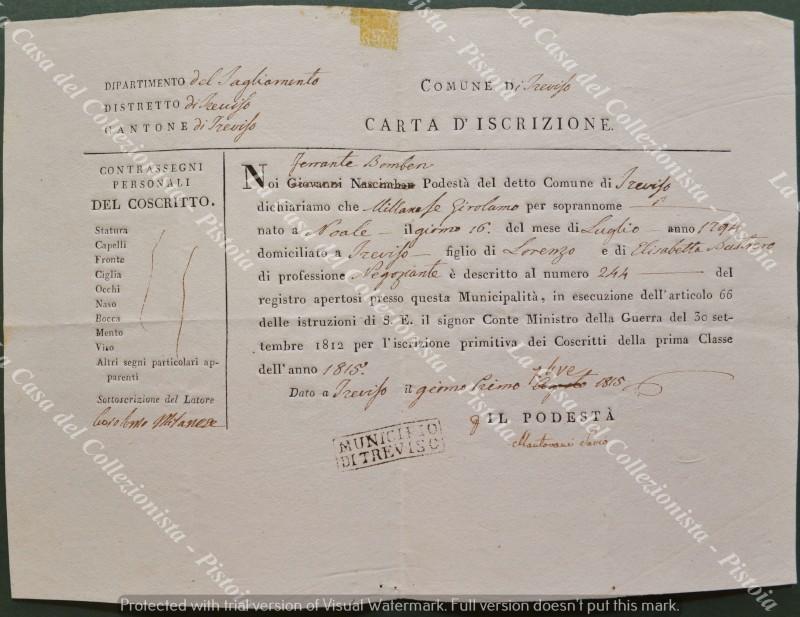 DIPARTIMENTO del Tagliamento
DISTRETTO di Treviso
CANTONE di Treviso
COMUNE DI Treviso
CARTA D'ISCRIZIONE.
CONTRASSEGNI
PERSONALI
DEL COSCRITTO.
Statura
Capelli
Fronte
Ciglia
Occhi
Naso
Bocca
Mento
Viso
Altri segni particolari ap-
parenti
Sottoscrizione del Latore
Girolamo Milanese
Ferrante Bomben
Noi Giovanni Nascimben Podestà del detto Comune di Treviso
dichiariamo che Millanese Girolamo per soprannome
nato a Noale il giorno 16. del mese di Luglio anno 1794
domiciliato a Treviso figlio di Lorenzo e di Elisabetta
di professione Negoziante è descritto al numero 244 del
registro apertosi presso questa Municipalità, in esecuzione dell'articolo 66
delle istruzioni di S. E. il signor Conte Ministro della Guerra del 30 set-
tembre 1812 per l'iscrizione primitiva dei Coscritti della prima Classe
dell'anno 1815.
Dato a Treviso il giorno Primo 1815
IL PODESTÀ
MUNICIPIO
DI TREVISO
La Casa del Collezionista - Pistoia
Protected with trial version of Visual Watermark. Full version doesn't put this mark.